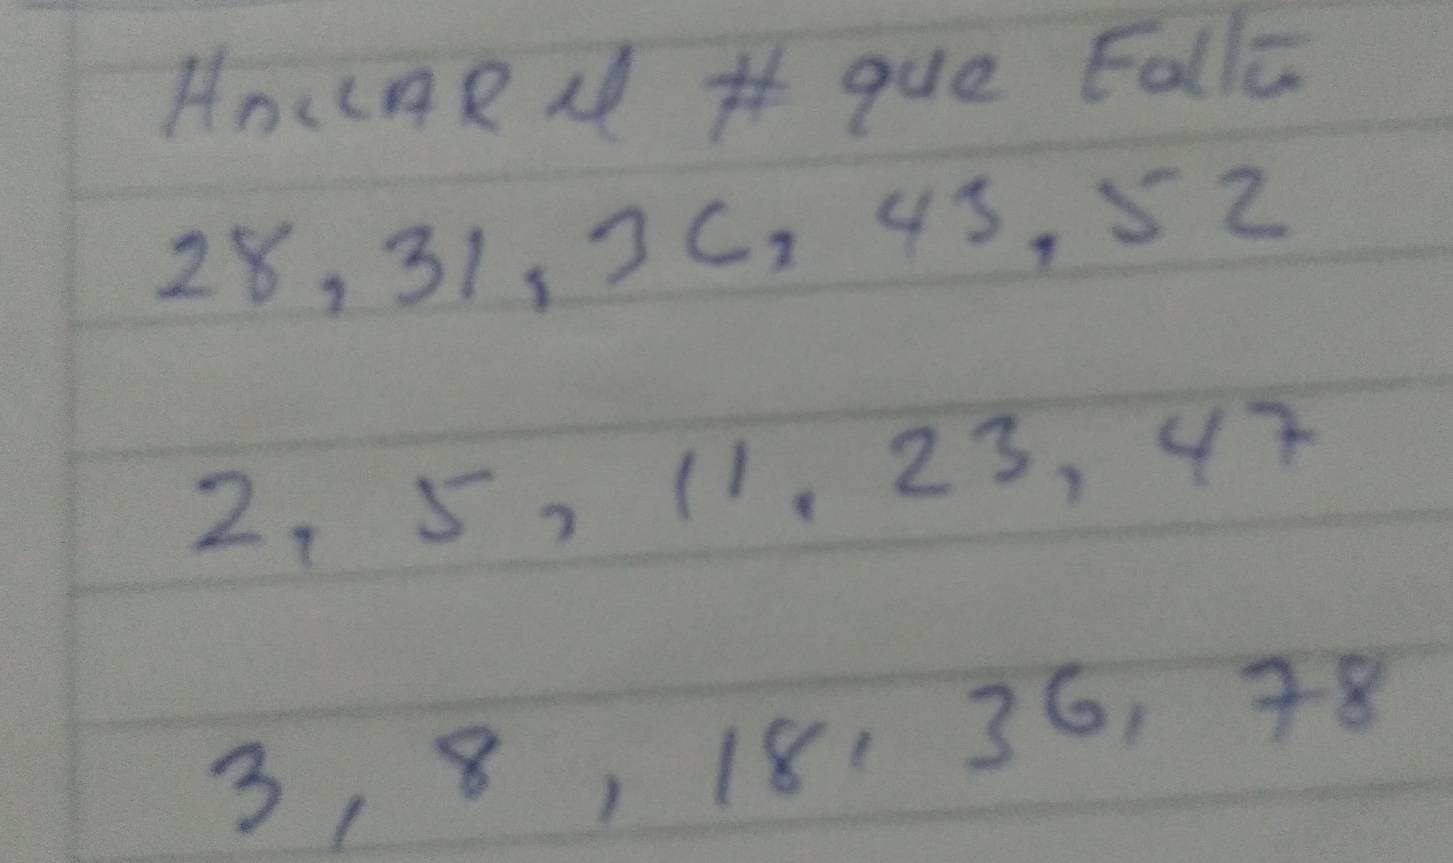 HALLAR el # que Falta
28, 31, 36, 43, 52
2, 5, 11, 23, 47
3, 8, 18, 36, 78